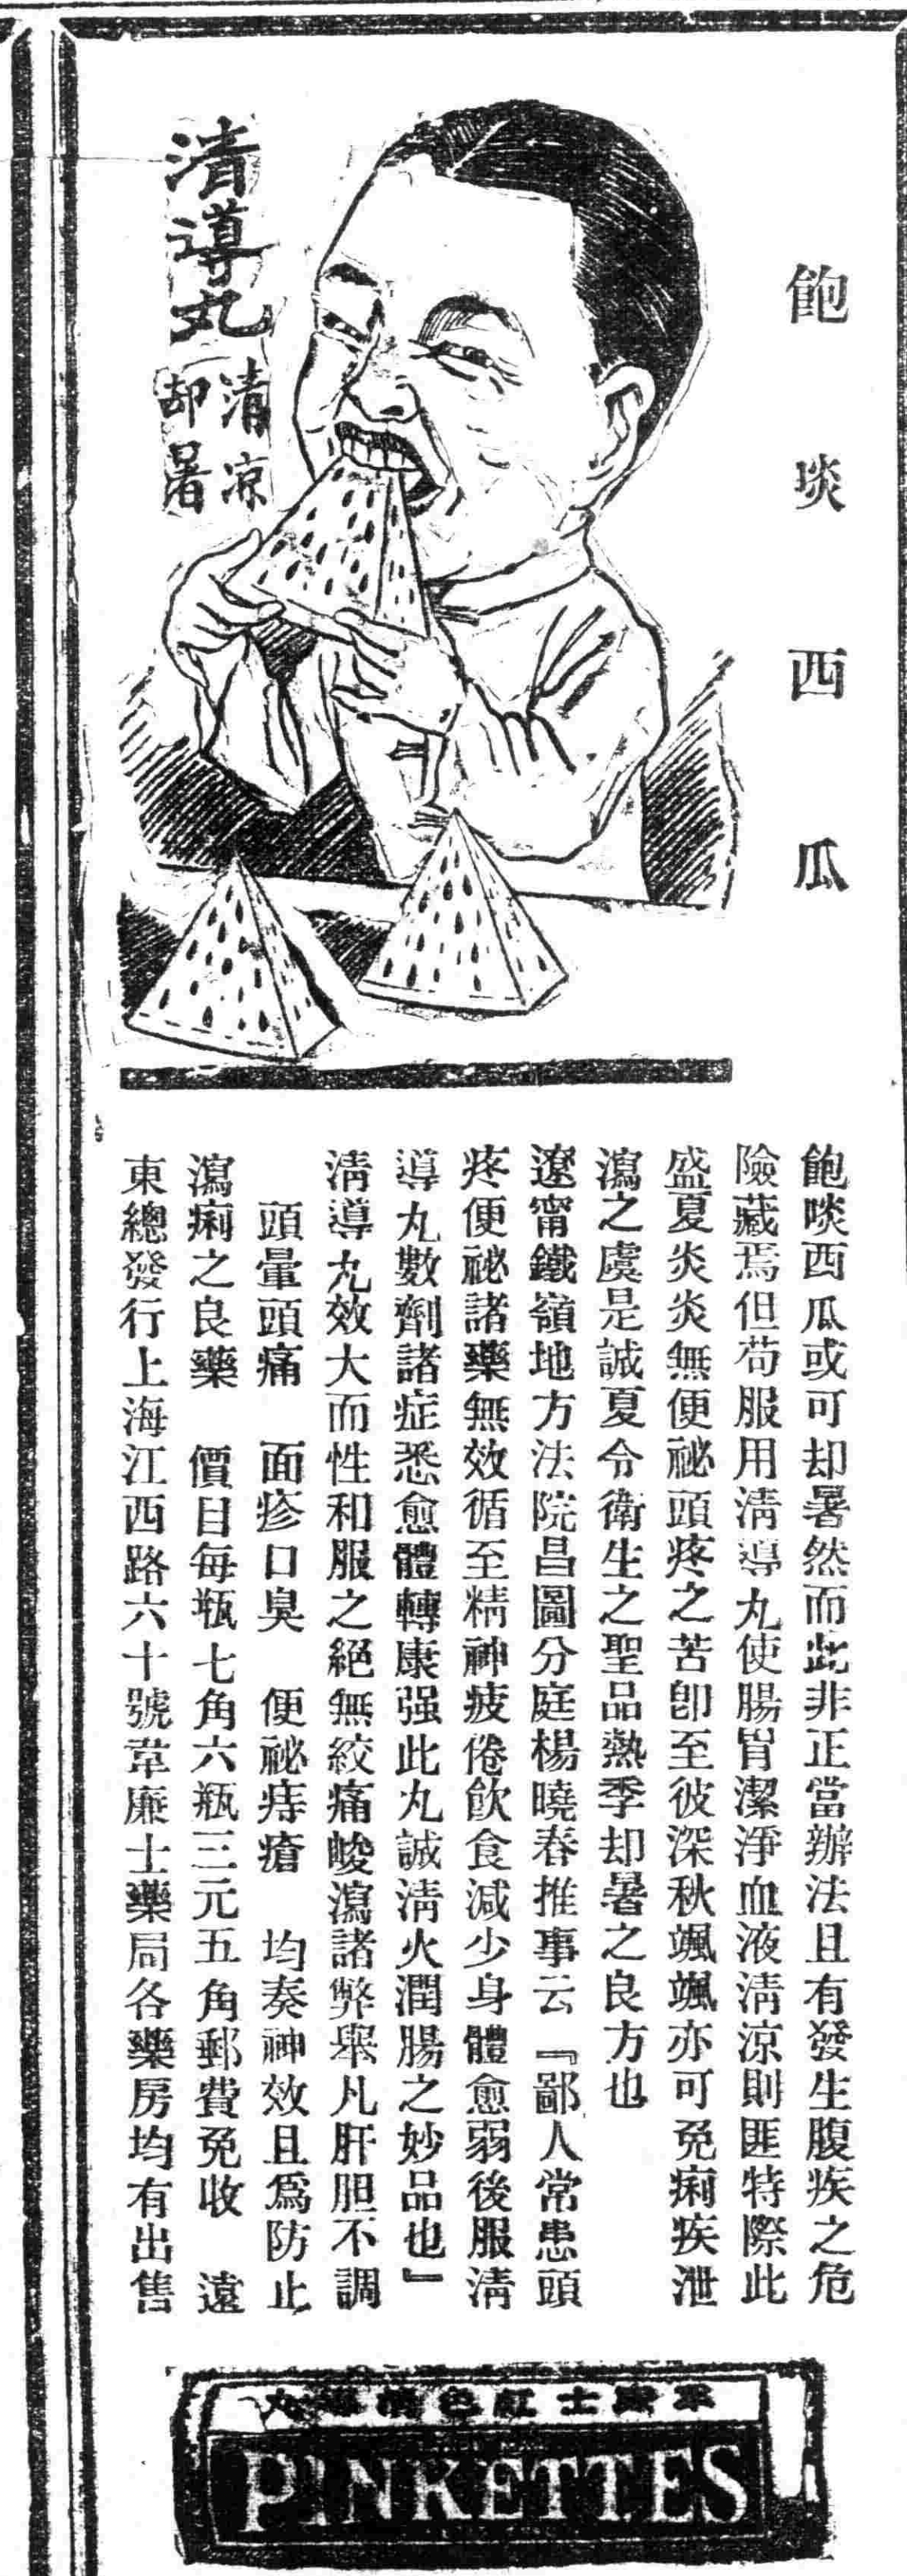 飽啖西瓜
清導丸
清凉
却暑
飽啖西瓜或可却暑然而此非正當辦法且有發生腹疾之危
險藏焉但苟服用清導丸使腸胃潔淨血液清凉則匪特際此
盛夏炎炎無便祕頭疼之苦卽至彼深秋颯颯亦可免痢疾泄
瀉之虞是誠夏令衛生之聖品熱季却暑之良方也
遼甯鐵嶺地方法院昌圖分庭楊曉春推事云『鄙人常患頭
疼便祕諸藥無效循至精神疲倦飲食減少身體愈弱後服清
導丸數劑諸症悉愈體轉康强此丸誠清火潤腸之妙品也』
清導丸效大而性和服之絕無絞痛峻瀉諸弊舉凡肝胆不調
頭暈頭痛　面疹口臭　便祕痔瘡　均奏神效且爲防止
瀉痢之良藥　價目每瓶七角六瓶三元五角郵費免收　遠
東總發行上海江西路六十號韋廉士藥局各藥房均有出售
韋廉士紅色清導丸
PINKETTES